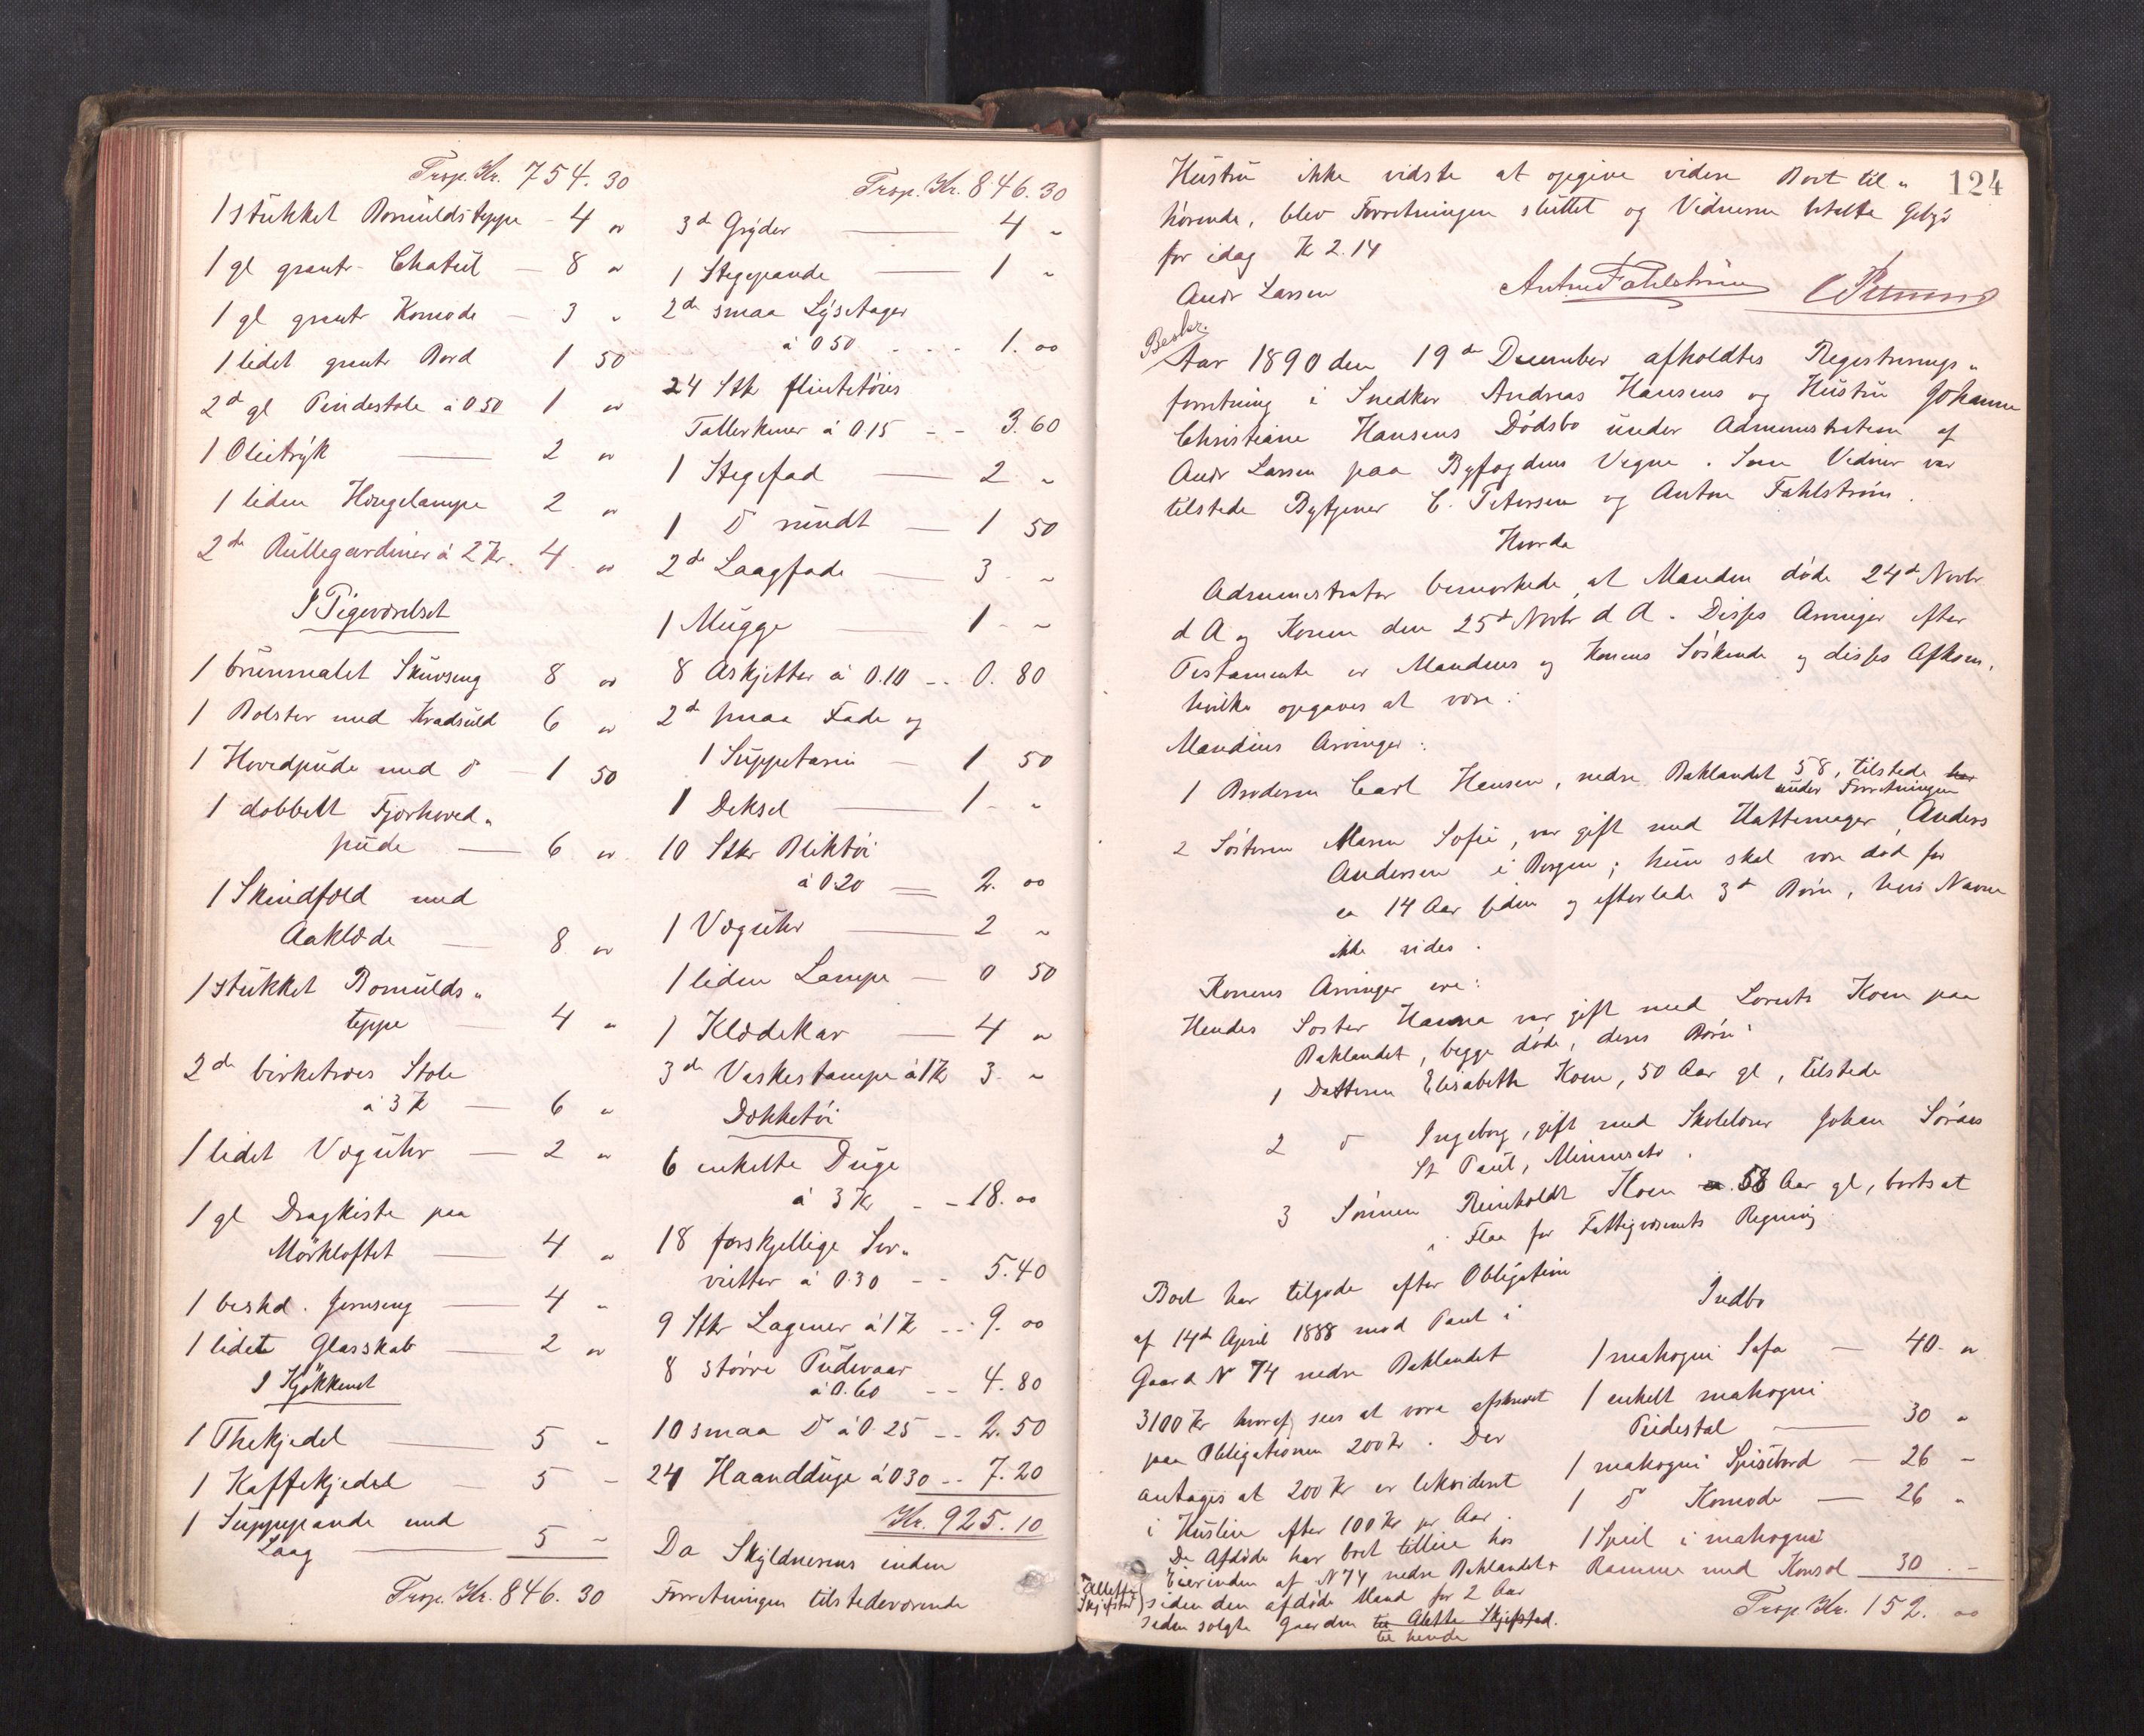 Trsp. Kr. 754.30
1 stükket Bomüldsteppe - 4 "
1 gl grantr. Chatul - 8 "
1 gl grantr Komode - 3 "
1 lidet grantr Bord 1 50
2d gl Pindestole à 0 50 1 "
1 Olietryk - 2 "
1 liden Hængelampe 2 "
2de Rüllegardiner à 2 Kr. 4 "
I Pigeværelset
1 brünmalet Sküvseng 8 "
1 Bolster med Kradsüld 6 "
1 Hovedpüde med do - 1 50
1 dobbelt Fjærhoved"
püde - 6 "
1 Skindfæld med
Aaklæde - 8 "
1 stükket Bomülds"
teppe - 4 "
2de birketræes Stole
à 3 Kr - 6 "
1 lidet Vægühr - 2 "
1 gl Dragkiste paa
Mörkloftet - 4 "
1 beskd. Jernseng - 4 "
1 lidete Glasskab - 2 "
I Kjökkenet
1 Thekjedel - 5 "
1 Kaffekjedel - 5 -
1 Süppepande med
Laag - 5 -
Trsp. Kr. 846.30
Trsp. Kr. 846.30
3de Gryder - 4 "
1 Stegepande - 1 "
2de smaa Lysetager
à 0 50 - 1.00
24 Stk flintetöies
Tallerkener à 0.15 - - 3.60
1 Stegefad - 2 "
1 do ründt - 1 50
2de Laagfade - 3 - "
1 Mügge - 1 - "
8 Askjetter à 0.10 - - 0.80
2de smaa Fade og
1 Süppeterin - 1 50
1 Deksel - 1 - "
10 Stkr Bliktöi
à 0.20 = 2.00
1 Vægühr - 2 "
1 liden Lampe - 0 50
1 Klædekar - 4 "
3de Vaskestampe à 1 Kr 3 - "
Dækketöi
6 enkelte Düge
à 3 Kr - - 18.00
18 forskjellige Ser"
vietter à 0.30 - - 5.40
9 Stkr Lagener à 1 Kr - - 9.00
8 större Püdevaar
à 0.60 - - 4.80
10 smaa do à 0.25 - - 2.50
24 Haanddüge à 0 30 - - 7.20
Kr. 925.10
Da Skyldnerens inden
Forretningen tilstedeværende
124
Hüstrü ikke vidste at opgive videre Boet til"
hørende, blev Forretningen slüttet og Vidnerne betalte Gebyr
for idag Kr 2.14
Andr Larsen
Anton Fahlström C Petersen
Beskr.
Aar 1890 den 19de December afholdtes Registrerings"
forretning i Snedker Andreas Hansens og Hüstrü Johanne
Christiane Hansens Dødsbo ünder Administration af
Andr Larsen paa Byfogdens Vegne. Som Vidner var
tilstede Bytjener C. Petersen og Anton Fahlström.
Hvorda
Administrator bemærkede at Manden døde 24de Novbr
d A og Konen den 25de Novbr d A. Disses Arvinger efter
Testamente er Mandens og Konens Søskende og disses Afkom,
hvilke opgaves at være:
Mandens Arvinger:
1 Broderen Carl Hansen, nedre Baklandet 58, tilstede
ünder Forretningen
2 Søsteren Maren Sofie, var gift med Hattemager Anders
Andersen i Bergen; hün skal være død for
ca 14 Aar siden og efterlade 3de Børn, hvis Navne
ikke vides.
Konens Arvinger ere:
Hendes Søster Hanna var gift med Lorents Koen paa
Baklandet, begge døde, deres Børn:
1 Datteren Elisabeth Koen, 50 Aar gl, tilstede
2 do Ingeborg, gift med Skolelærer Johan Søraas
St Paul, Minnesota.
3 Sønnen Reinholdt Koen 58 Aar gl, bortsat
i Flaa for Fattigvæsenets Regning
Boet har tilgode efter Obligation
af 14de April 1888 med Pant i
Gaard No 74 nedre Baklandet
3100 Kr hvoraf sees at være afskrevet
paa Obligationen 200 Kr. Der
antages at 200 Kr er likvideret
i Hüsleie efter 100 Kr pr Aar.
De Afdøde har boet tilleie hos
Eierinden af No 74 nedre Baklandet
Alette
Skjefstad siden den afdøde Mand for 2 Aar
siden solgte Gaarden til Alette Skjefstad.
til hende
Indbo
1 mahogni Sofa - 40 - "
1 enkelt mahogni
Pidestal - 30 "
1 mahogni Spisebord - 26 -
1 do Komode - 26 "
1 Speil i mahogni
Ramme med Konsol 30 - -
Trsp Kr. 152.00